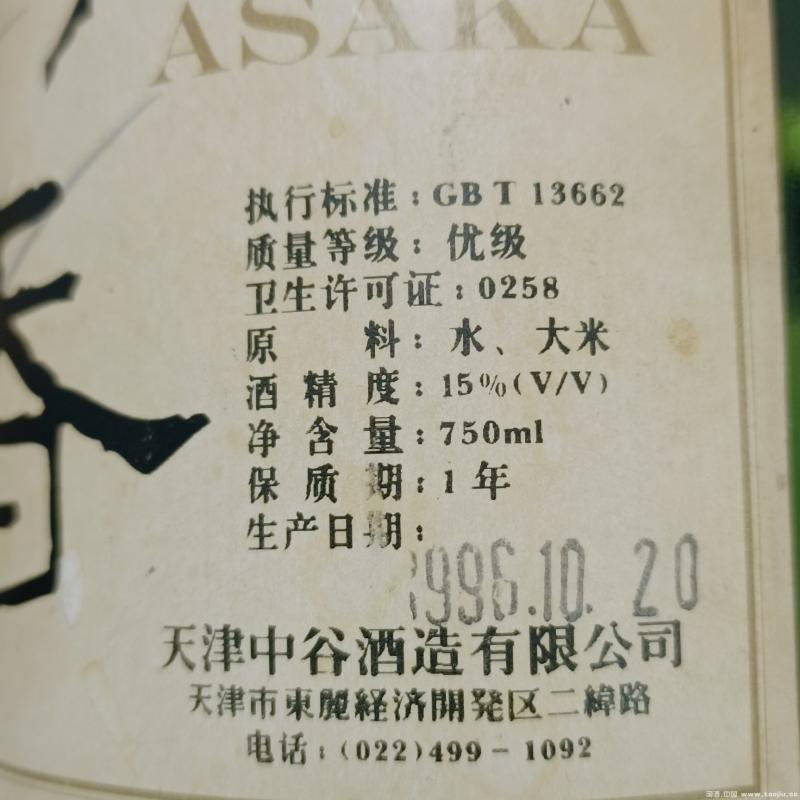 ASAKA
执行标准：GB T 13662
质量等级：优级
卫生许可证：0258
原 料：水、大米
酒精度：15%(V/V)
净含量：750ml
保质期：1 年
生产日期：
1996.10.20
天津中谷酒造有限公司
天津市東麗経済開発区二緯路
电话：(022)499－1092